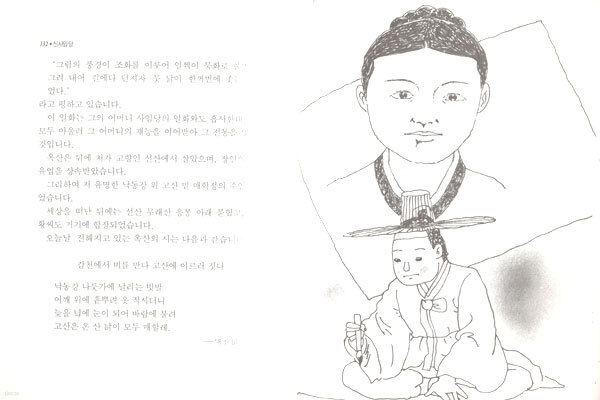 132 • 신사임당
"그림의 풍경이 조화를 이루어 일찍이 묵화로
그려 내어 길에다 던지자 뭇 닭이 한꺼번에
었다."
라고 평하고 있습니다.
이 일화는 그의 어머니 사임당의 일화와도
모두 아울러 그 어머니의 재능을 이어받아 그 전통을
것입니다.
옥산은 뒤에 처가 고향인 선산에서 살았으며,
유업을 상속받았습니다.
그리하여 저 유명한 낙동강 위 고산 밑 매학정의
었습니다.
세상을 떠난 뒤에는 선산 무래산 응봉 아래
황씨도 거기에 합장되었습니다.
오늘날 전해지고 있는 옥산의 시는 다음과
감천에서 비를 만나 고산에 이르러 짓다
낙동강 나룻가에 날리는 빗발
어깨 위에 흩뿌려 옷 적시더니
늦을 녘에 눈이 되어 바람에 불려
고산은 온 산 같이 모두 매화래.